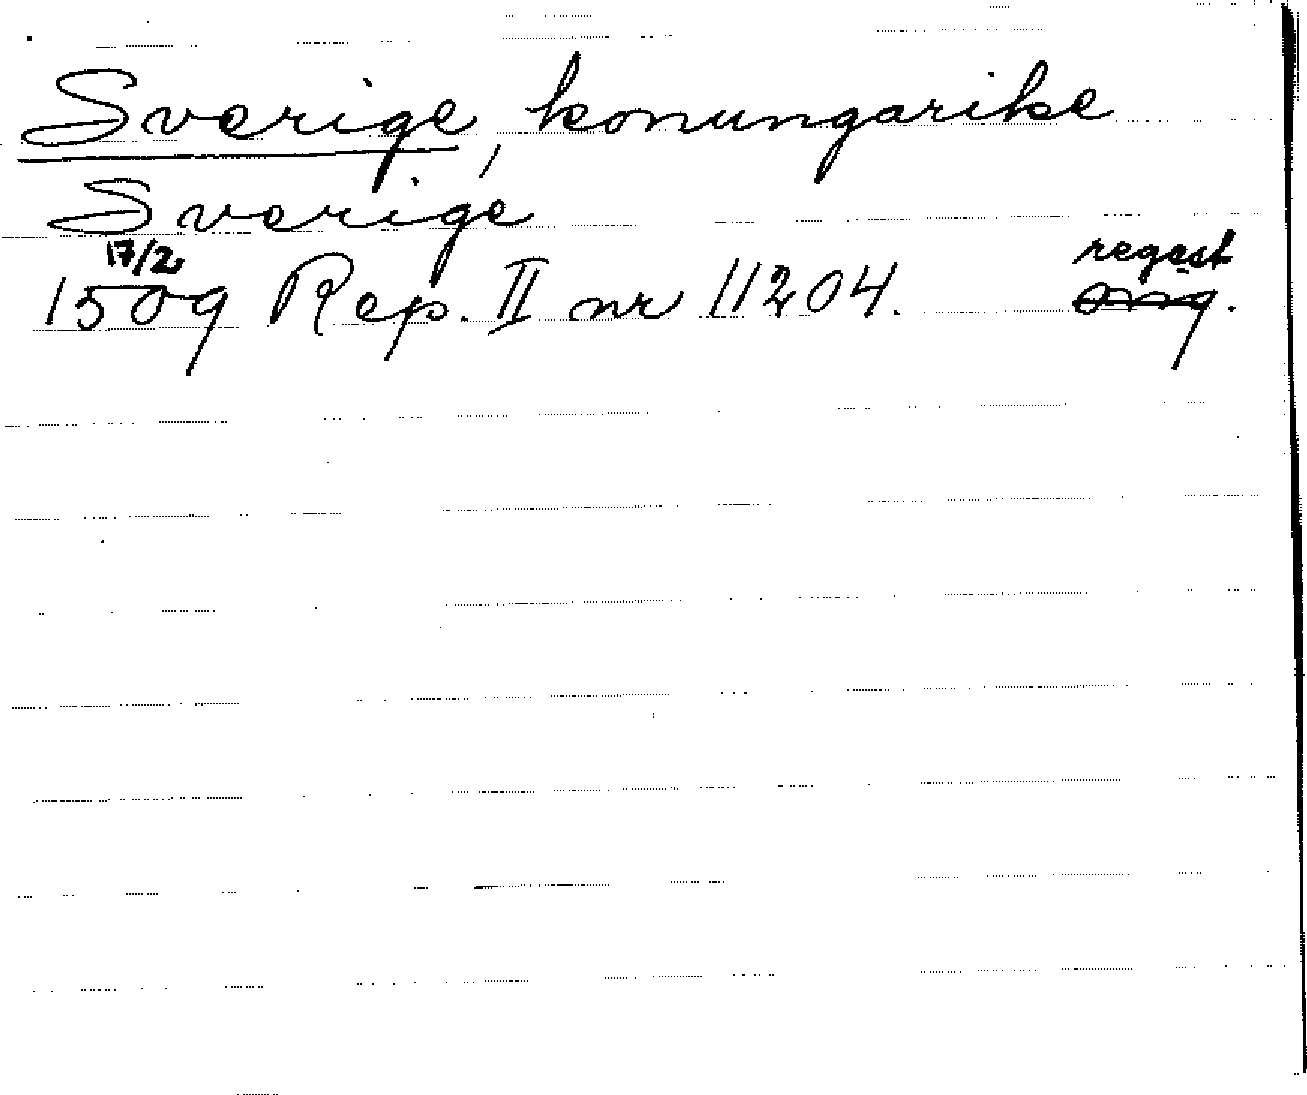 Sverige, konungarike
Sverige
17/2 regest
1509 Rep. II nr 11204. orig.